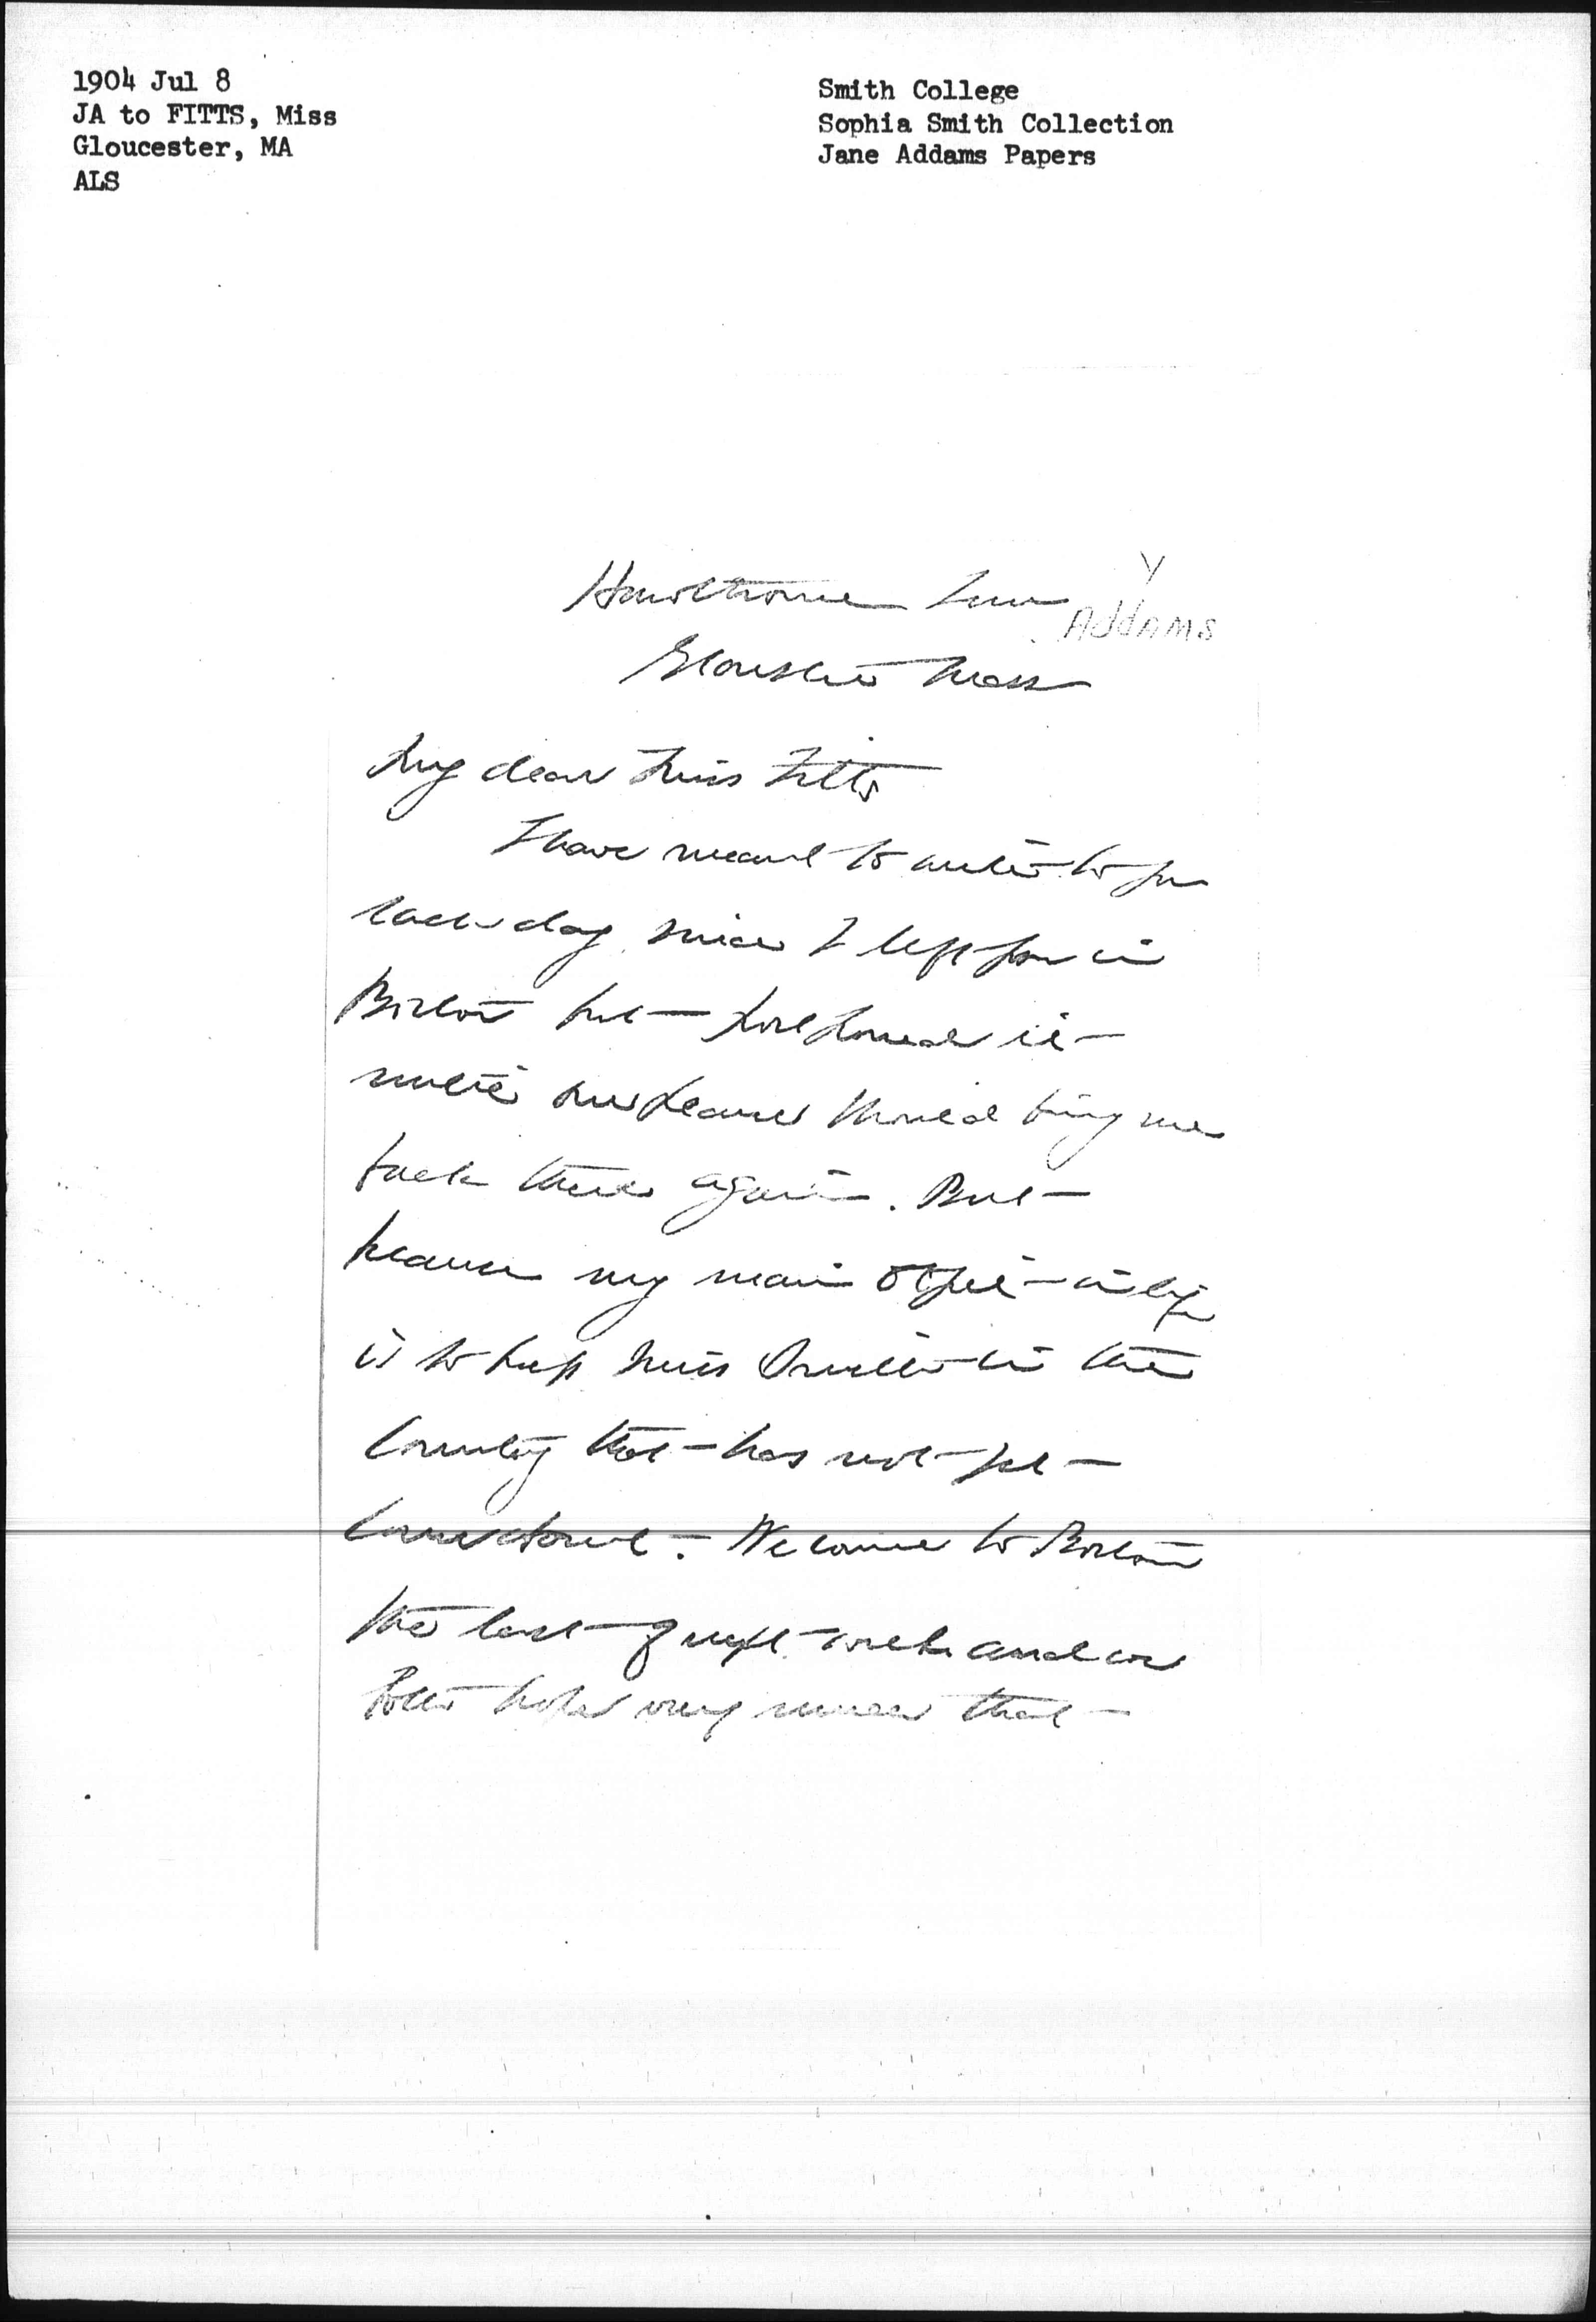 1904 Jul 8
JA to FITTS, Miss
Gloucester, MA
ALS
Smith College
Sophia Smith Collection
Jane Addams Papers
Y
ADDAMS
Hawthorne Inn
Gloucester Mass
My dear Miss Fitts
I have meant to write to you
each day since I left you in
Boston but postponed it
until business should bring me
back there again. But
because my main object in life
is to keep Miss Smith in the
country that has not yet
come about. We come to Boston
the last of next week and we
both hope very much that